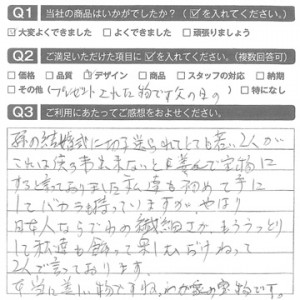 Q1 当社の商品はいかがでしたか?(☑を入れてください。)
☑大変よくできました □よくできました □頑張りましょう
Q2 ご満足いただけた項目に☑を入れてください。(複数回答可)
□価格 □品質 ☑デザイン □商品 □スタッフの対応 □納期
□その他(プレゼントされた物です父の日の) □特になし
Q3 ご利用にあたってご感想をおよせください。
孫の結婚式に切子送られてとても若い2人が
これは使う事出来ないと喜んで宝物に
すると言っておりました私達も初めて手に
してバカラも持っていますが、やはり
日本人ならでわの繊細さか、もううっとり
して私達も飾って楽しむだけねって
2人で言っております。
本当に美しい物ですね、わが家の宝物です。